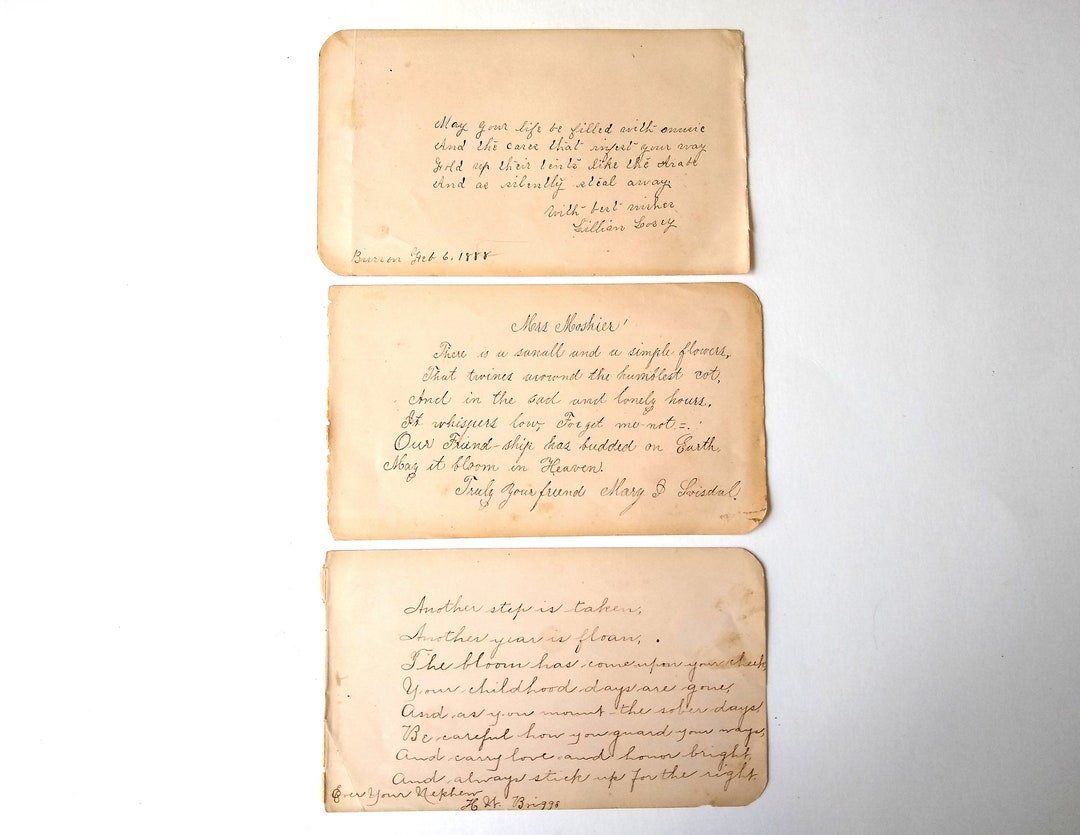 May your life be filled with music
And the cares that infest your way
Fold up their tents like the Arabs
And as silently steal away.
With best wishes
Lillian Losey
Feb 6. 1888
Mrs Moshier!
There is a small and a simple flowers,
That twines arownd the humblest cot,
And in the sad and lonely hours.
It whispers low, Forget me not =.!
Our Friend-ship has budded on Earth
May it bloom in Heaven.
Truly Your friend Mary
Another step is taken,
Another year is floan,.
The bloom has come upon your cheek,
Your childhood days are gone,
And as you mount the sober days
Be careful how you guard you ways,
And carry love and honor bright,
And always stick up for the right.
Ever Your Nephew
H W. Briggs